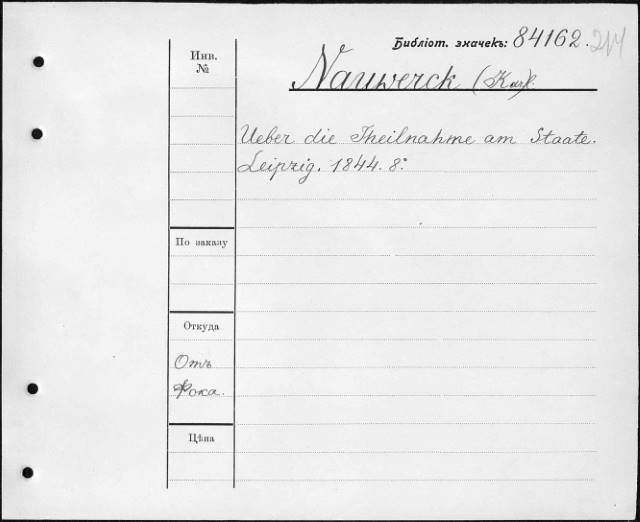 Библіот. значекъ: 84162.
Инв.
№
Nauwerck (Karl).
Ueber die Theilnahme am Staate.
Leipzig. 1844. 8°.
По заказу
Откуда
Отъ
Фока.
Цѣна